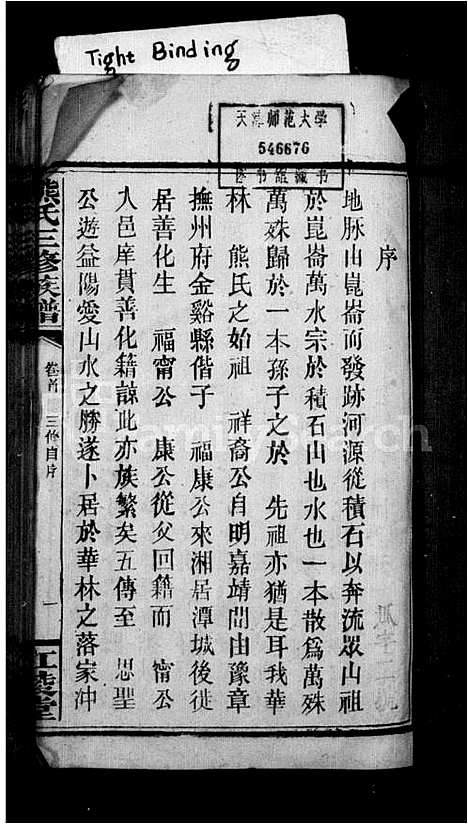 Tight Binding
天津师范大学
546676
图书馆藏书
序
地脉山崑崙而發跡河源從積石以奔流眾山祖
於崑崙萬水宗於積石山也水也一本散爲萬殊
萬殊歸於一本孫子之於 先祖亦猶是耳我華
林 熊氏之始祖 祥裔公自明嘉靖間由豫章
撫州府金谿縣偕子 福康公來湘居潭城後徙
居善化生 福甯公 康公從父回籍而 甯公
入邑庠貫善化籍諒此亦族繁矣五傳至 思聖
公遊益陽愛山水之勝遂卜居於華林之落家冲
熊氏三修族譜
卷首 三修自序
一
江陵堂
FamilySearch